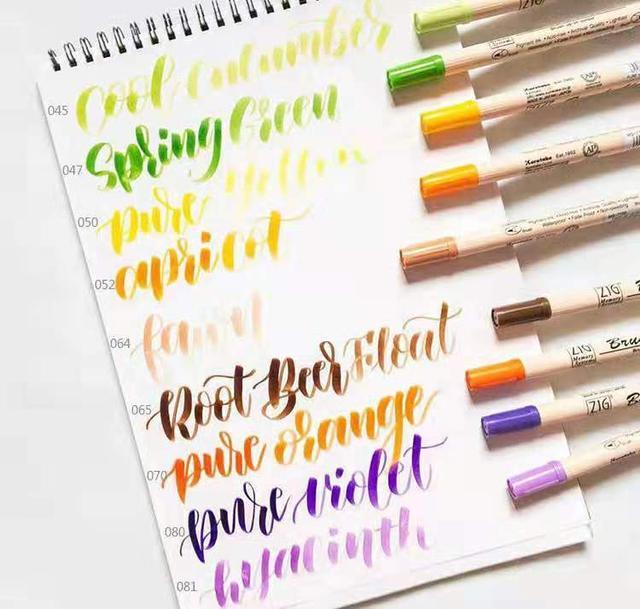 045 Cool cucumber
047 Spring Green
050 pure yellow
052 apricot
064 fawn
065 Root Beer Float
070 pure orange
080 pure violet
081 hyacinth
ZIG
Kuretake
AP
Kuretake
AP
ZIG
ZIG
ZIG